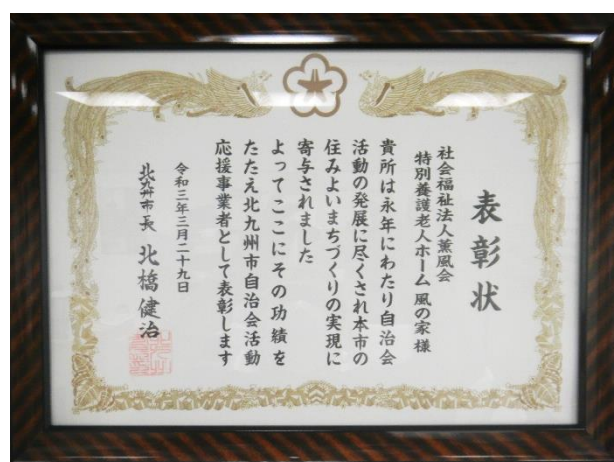 表彰状
社会福祉法人薫風会
特別養護老人ホーム 風の家 様
貴所は永年にわたり自治会
活動の発展に尽くされ本市の
住みよいまちづくりの実現に
寄与されました
よってここにその功績を
たたえ北九州市自治会活動
応援事業者として表彰します
令和三年三月二十九日
北九州市長 北橋健治